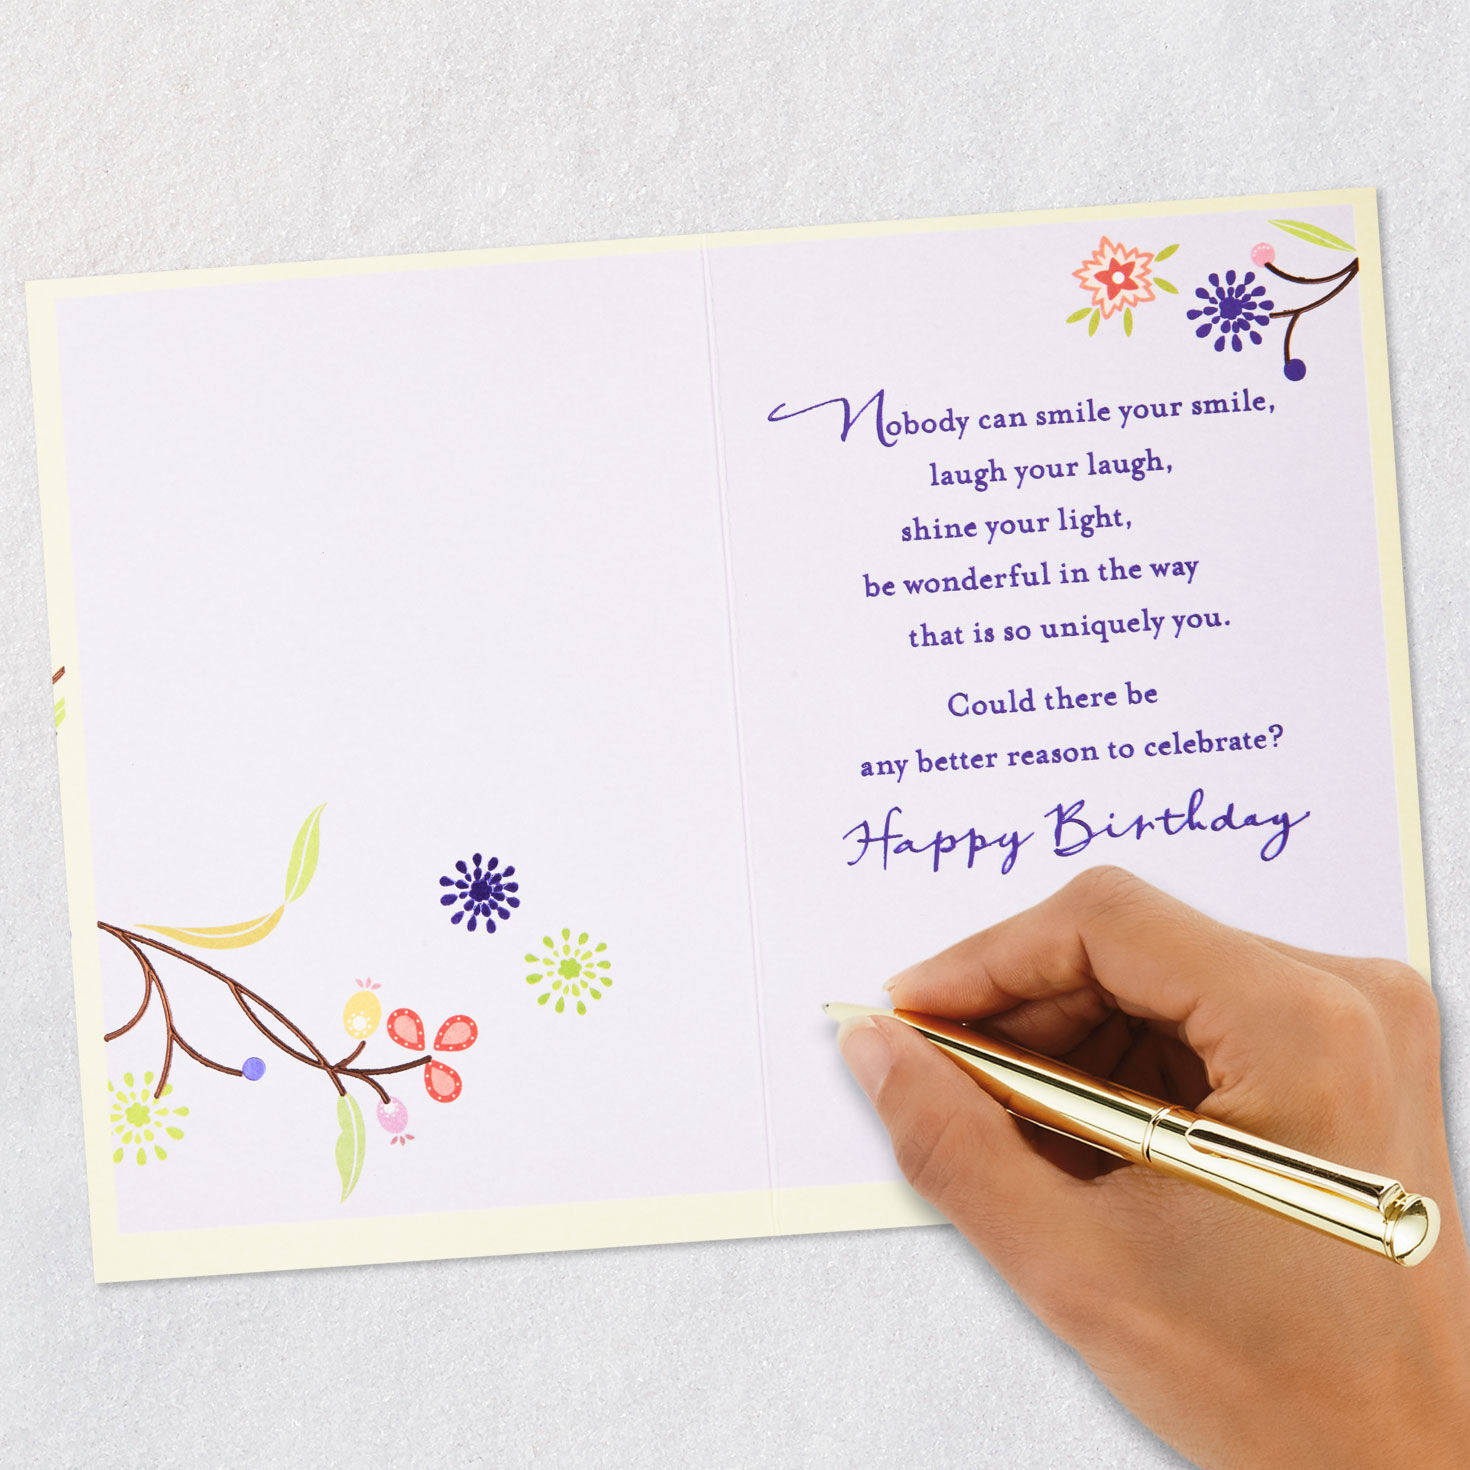 Nobody can smile your smile,
laugh your laugh,
shine your light,
be wonderful in the way
that is so uniquely you.
Could there be
any better reason to celebrate?
Happy Birthday